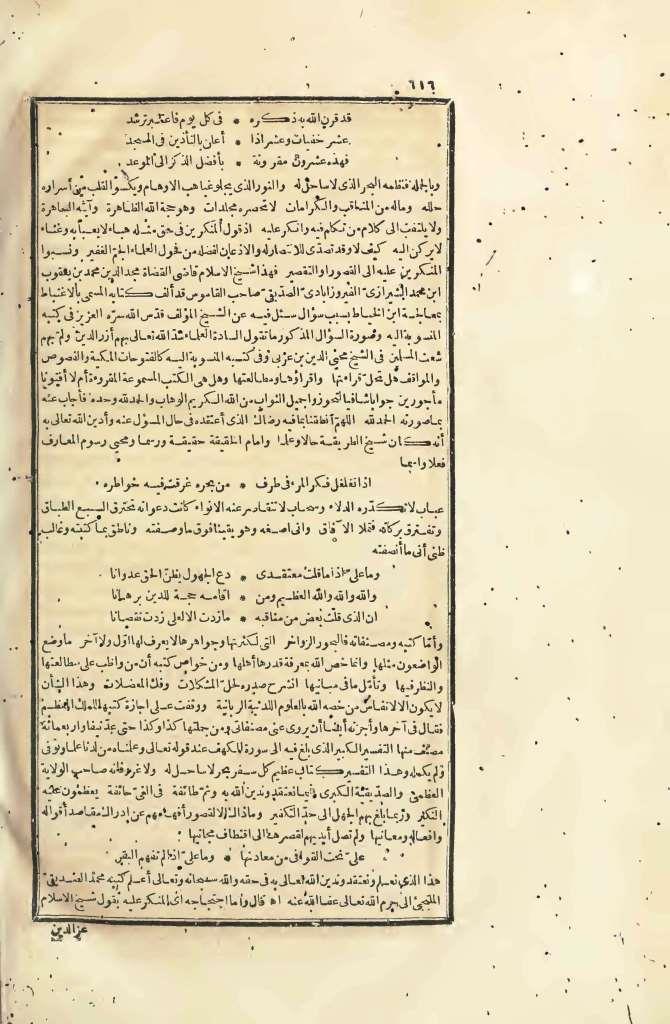 ٦١٦
قد قرن الله به ذكره * فى كل يوم فاعتبر ترشد
عشر خفيات وعشر اذا * أعان بالتأذين فى المسجد
فهذه عشرون مقرونة * بأفضل الذكر الى الموعد
وبالجملة فقامه البحر الذى لا ساحل له والنور الذى يجلو غياهب الاوهام ويكسو القلب من أسراره
حلله وماله من المناقب والكرامات لا تحصره مجلدات وهو حجة الله الظاهرة وآيته الباهرة
ولا يلتفت الى كلام من تكلم فيه وانكر عليه اذ قول المنكرين فى حق مثله هباء لا يعبأ به وغثاء
لا يركن اليه كيف لا وقد تصدى للانتصار له والاذعان لفضله من فحول العلماء الجم الغفير ونسبوا
المنكرين عليه الى القصور او التقصير فهذا شيخ الاسلام قاضى القضاة مجد الدين محمد بن يعقوب
ابن محمد الشيرازى الفيروزابادى الصديقى صاحب القاموس قد ألف كتابه المسمى بالاغتباط
بمعالجة ابن الخياط بسبب سؤال سئل فيه عن الشيخ المؤلف قدس الله سره العزيز فى كتبه
المنسوبة اليه وصورة السؤال المذكور ما تقول السادة العلماء شد الله تعالى بهم أزر الدين ولم بهم
شعث المسلمين فى الشيخ محيى الدين بن عربى وفى كتبه المنسوبة اليه كالفتوحات المكية والفصوص
والمواقف هل تحل قراءتها واقراؤها ومطالعتها وهل هى الكتب المسموعة المقروءة أم لا أفتونا
مأجورين جوابا شافيا لتحوزوا جميل الثواب من الله الكريم الوهاب والحمد لله وحده فأجاب عنه
بما صورته الحمد لله اللهم أنطقنا بما فيه رضاك الذى أعتقده فى حال المسؤل عنه وأدين الله تعالى به
أنه كان شيخ الطريقة حالا وعلما وامام الحقيقة حقيقة ورسما ومحيى رسوم المعارف
فعلا واسما
اذا تغلغل فكر المرء فى طرف * من بحره غرقت فيه خواطره
عباب لا تكدره الدلاء وسحاب لا تتقاصر عنه الانواء كانت دعواته تخترق السبع الطباق
وتفترق بركاته فتملأ الآفاق وانى اصفه وهو يقينا فوق ما وصفته وناطق بما كتبته وغالب
ظنى أنى ما أنصفته
وما على اذا ما قلت معتقدى * دع الجهول يظن الحق عدوانا
والله والله والله العظيم ومن * اقامه حجة للدين برهانا
ان الذى قلت بعض من مناقبه * ما زدت الا لعلى زدت نقصانا
وأما كتبه ومصنفاته فالبحور الزواخر التى لكثرتها وجواهرها لا يعرف لها أول ولا آخر ما وضع
الواضعون مثلها وانما خص الله بمعرفة قدرها أهلها ومن خواص كتبه أن من واظب على مطالعتها
والنظر فيها وتأمل ما فى مبانيها انشرح صدره لحل المشكلات وفك المعضلات وهذا الشأن
لا يكون الا لانفاس من خصه الله بالعلوم اللدنية الربانية ووقفت على اجازة كتبها للملك المعظم
فقال فى آخرها وأجزته أيضا أن يروى عنى مصنفاتى ومن جملتها كذا وكذا حتى عد نيفا واربعمائة
مصنف منها التفسير الكبير الذى بلغ فيه الى سورة الكهف عند قوله تعالى وعلمناه من لدنا علما وتوفى
ولم يكمله وهذا التفسير كتاب عظيم كل سفر بحر لا ساحل له ولا غرو فانه صاحب الولاية
العظمى والصديقية الكبرى فيما نعتقد وندين الله به وثم طائفة فى الغى حائفة يعظمون عليه
النكير وربما بلغ بهم الجهل الى حد التكفير وما ذاك الا لقصور أفهامهم عن ادراك مقاصد أقواله
وافعاله ومعانيها ولم تصل أيديهم لقصرها الى اقتطاف مجانيها
على نحت القوافى من معادنها * وما على اذا لم تفهم البقر
هذا الذى نعلم ونعتقد وندين الله تعالى به فى حقه والله سبحانه وتعالى أعلم كتبه محمد الصديقى
الملتجئ الى حرم الله تعالى عفا الله عنه اه قال واما احتجاجه اى المنكر عليه بقول شيخ الاسلام
عز الدين